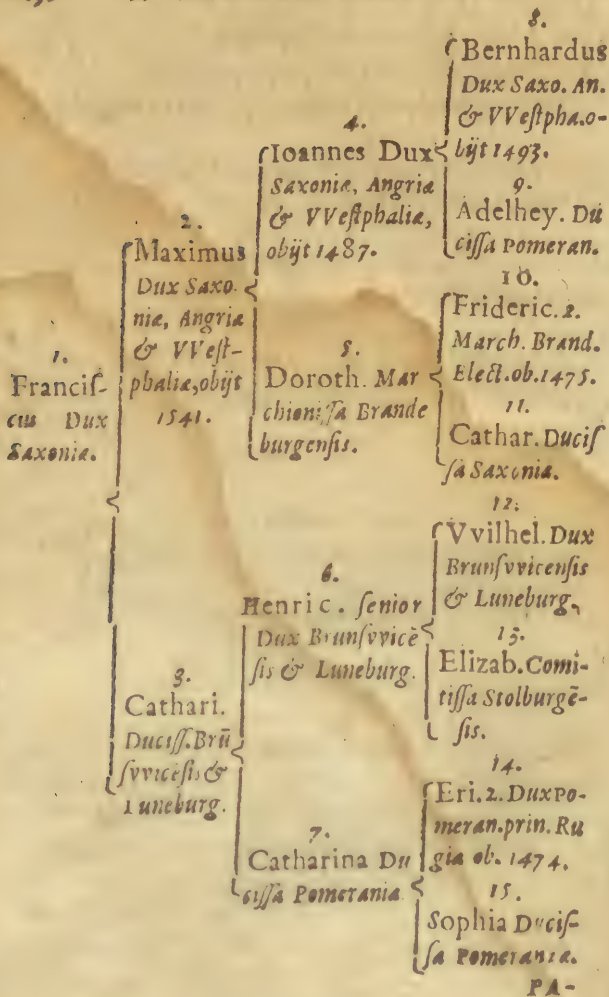 1.
Franciſ-
cus Dux
Saxoniæ.
2.
Maximus
Dux Saxo-
niæ, Angriæ
& VVeſt-
phaliæ, obijt
1541.
3.
Cathari.
Duciſſ. Brū
ſvvicēſis &
Luneburg.
4.
Ioannes Dux
Saxoniæ, Angriæ
& VVeſtphaliæ,
obijt 1487.
5.
Doroth. Mar
chioniſſa Brande
burgenſis.
6.
Henric. ſenior
Dux Brunſvvicē
ſis & Luneburg.
7.
Catharina Du
ciſſa Pomeraniæ
8.
Bernhardus
Dux Saxo. An.
& VVeſtpha. o-
bijt 1493.
9.
Adelhey. Du
ciſſa Pomeran.
10.
Frideric. 2.
March. Brand.
Elect. ob. 1475.
11.
Cathar. Duciſ
ſa Saxoniæ.
12.
Vvilhel. Dux
Brunſvvicenſis
& Luneburg.
13.
Elizab. Comi-
tiſſa Stolburgē-
ſis.
14.
Eri. 2. Dux Po-
meran. prin. Ru
giæ ob. 1474.
15.
Sophia Duciſ-
ſa Pomeraniæ.
PA-